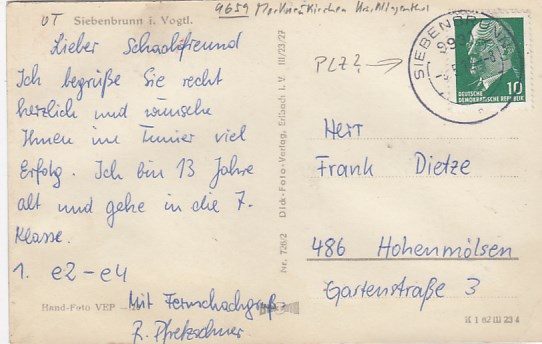 OT Siebenbrunn i. Vogtl.
9659 Markneukirchen Krs. Klingenthal
PLZ?
SIEBENBRUNN
99
DEUTSCHE
DEMOKRATISCHE REPUBLIK 10
Lieber Schachfreund
Ich begrüße Sie recht
herzlich und wünsche
Ihnen im Turnier viel
Erfolg. Ich bin 13 Jahre
alt und gehe in die 7.
Klasse.
1. e2-e4
Mit Fernschachgruß
Hand-Foto VEP
Nr. 726/2 Dick-Foto-Verlag, Erlbach i. V. III/23/27
Herr
Frank Dietze
486 Hohenmölsen
Gartenstraße 3
K 1 62 III 23 4